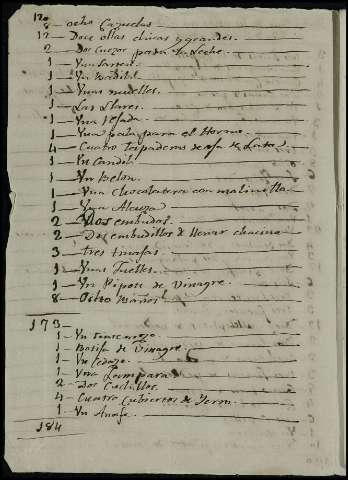 120
8 — ocho Cazuelas
12 — Doce ollas chicas y grandes.
2 — Dos Cuezos para la Leche.
1 — Una Sarten.
1 — Un Badil
1 — Unas
1 — Las Llares.
1 — Una
1 — Una pala para el Horno.
4 — Cuatro tapaderas de oja de Lata
1 — Un Candil
1 — Un Belon.
1 — Una Chocolatera con molinillo
1 — Una Alcuza
2 — Dos embudos.
2 — Dos embudillos de llenar chacina
3 — tres tinajas.
1 — Unos Fuelles.
1 — Un Pipote de Vinagre.
8 — Ocho
173
1 — Un
1 — Botija de Vinagre.
1 — Un Cedazo.
1 — Una Lampara
2 — Dos Cuchillos.
4 — Cuatro Cubiertos de
1 — Un Anafe.
184